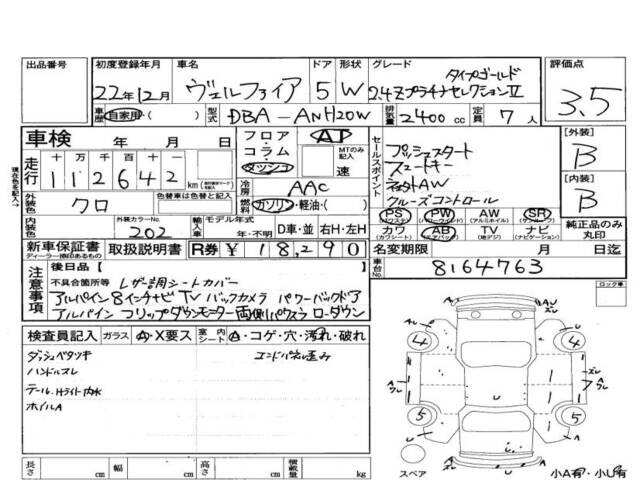 出品番号
初度登録年月 車名 ドア 形状 グレード 評価点
22年12月 ヴェルファイア 5 W タイプゴールド
2.4Zプラチナセレクション Ⅱ
3.5
車歴 自家用・( ) 型式 DBA-ANH20W 排気量 2400 cc 定員 7 人
車検 年 月 日
フロア コラム ダッシュ AT MTのみ記入 速
セールスポイント
プッシュスタート
スマートキー
社外AW
クルーズコントロール
[外装] B
[内装] B
走行 十 万 千 百 十 一
112642 km
冷房 AAC
外装色 クロ 色替車は色替前と記入
燃料 ガソリン・軽油・( )
PS PW AW SR
(パワステ) (パワーウィンド) (アルミホイル) (サンルーフ)
カワ AB TV ナビ
(カワシート) (エアバック) (地デジ) (ナビゲーション)
純正品のみ丸印
内装色 外装カラーNo. 202 輸入車 モデル年式 年・不明 D車・並 右H・左H
新車保証書 ディーラー捺印あるもの 取扱説明書 R券 ¥18,290
名変期限 月 日迄
車台No. 8164763
現在色を記入→
注意事項
後日品【 】
不具合箇所等 レザー調シートカバー
アルパイン8インチナビ TV バックカメラ パワーバックドア
アルパイン フリップダウンモニター 両側パワスラ ローダウン
ロック車
検査員記入 ガラス A・X要ス 室内シート A・コゲ・穴・汚れ・破れ
ダッシュベタツキ
エンドパネル歪み
ハンドルスレ
テール、Hライト内水
ホイルA
4 4
5 5
A ワレ
U
スレ
スペア
小A有・小U有
長さ cm 幅 cm 高さ cm 積載量 kg